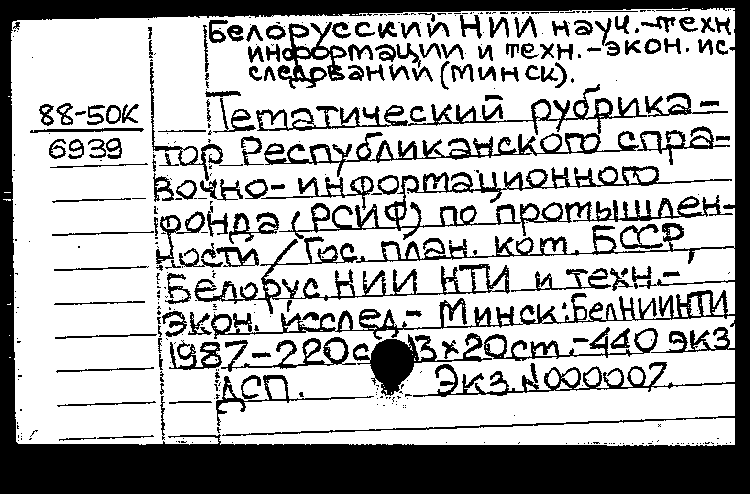 Белорусский НИИ науч.-техн.
информации и техн.-экон. ис-
следований (Минск).
88-50К
6939
Тематический рубрика-
тор Республиканского спра-
вочно-информационного
фонда (РСИФ) по промышлен-
ности / Гос. план. ком. БССР,
Белорус. НИИ НТИ и техн.-
экон. исслед.- Минск: БелНИИНТИ
1987.-220с 13×20см.-440 экз
ДСП. Экз. №000007.